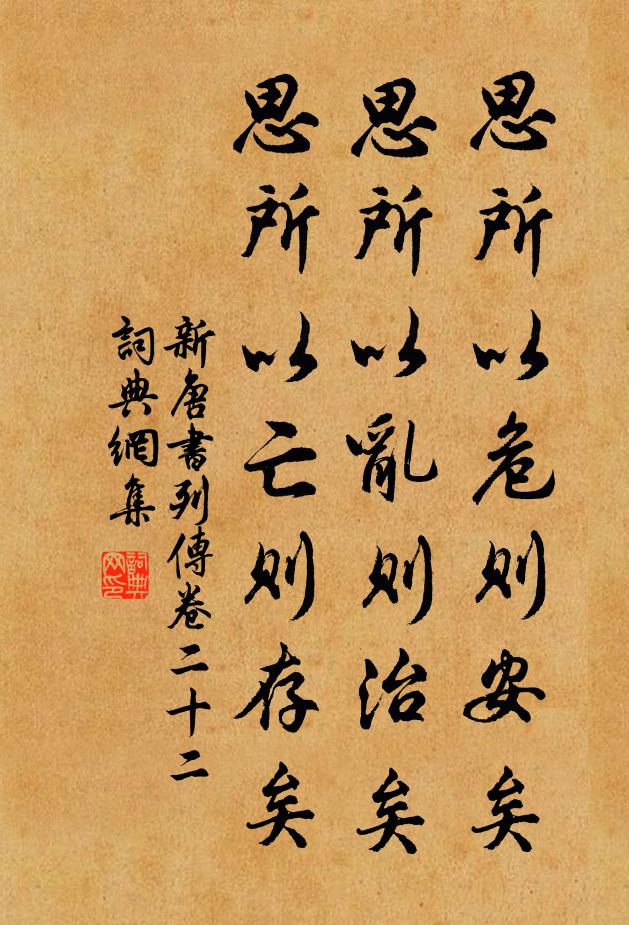 思所以危則安矣
思所以亂則治矣
思所以亡則存矣
新唐書列傳卷二十二
詞典網集
詞典网印